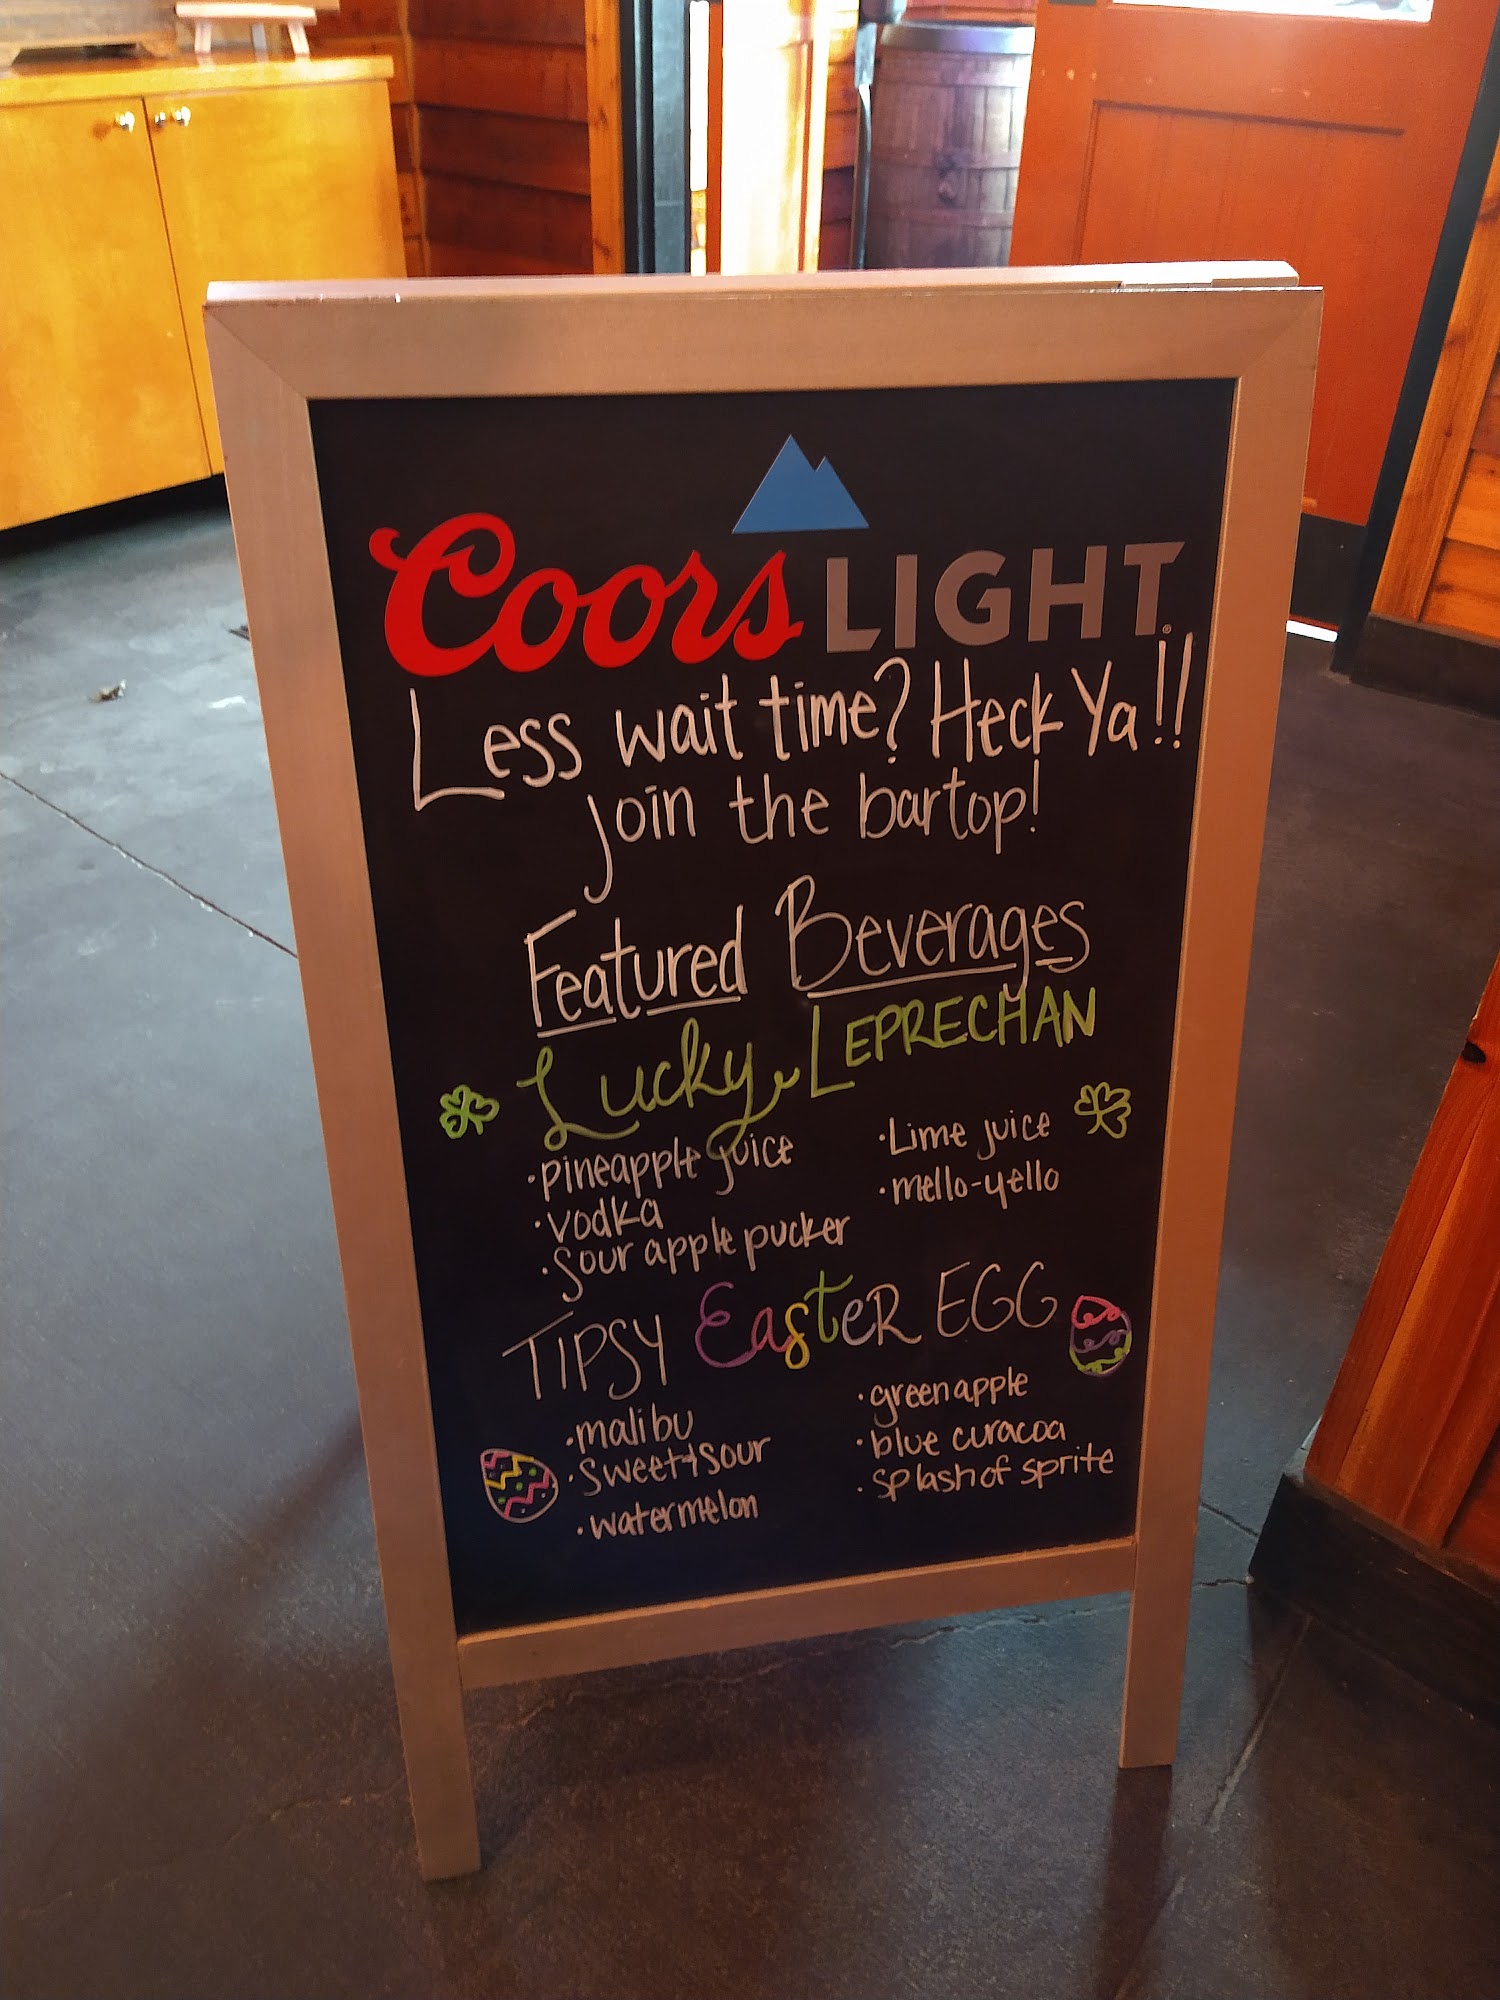 Coors LIGHT®
Less wait time? Heck Ya!!
join the bartop!
Featured Beverages
Lucky LEPRECHAN
• pineapple juice
• vodka
• sour apple pucker
• Lime juice
• mello-yello
TIPSY EasteR EGG
• malibu
• sweet+sour
• watermelon
• green apple
• blue curacoa
• splash of sprite